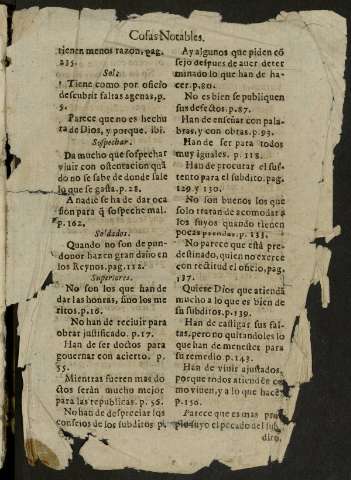 Cosas Notables.
tienen menos razon, pag.
235.
Sol:
Tiene como por oficio
descubrir faltas agenas, p.
5.
Parece que no es hechu
ra de Dios, y porque. ibi.
Sospechar.
Da mucho que sospechar
viuir con ostentacion quãdo
no se sabe de donde sale
lo que se gasta. p. 28.
A nadie se ha de dar oca
sion para q̃ sospeche mal.
p. 162.
Soldados.
Quando no son de pun-
donor hazen gran daño en
los Reynos. pag. 112.
Superiores.
No son los que han de
dar las honras, sino los me
ritos. p. 16.
No han de reciuir para
obrar justificado. p. 17.
Han de ser doctos para
gouernar con acierto. p.
55.
Mientras fueren mas do
ctos seràn mucho mejor
para las republicas. p. 56.
No han de despreciar los
consejos de los subditos p.
Ay algunos que piden cõ
sejo despues de auer deter
minado lo que han de ha-
cer. p. 80.
No es bien se publiquen
sus defectos. p. 87.
Han de enseñar con pala-
bras, y con obras. p. 93.
Han de ser para todos
muy iguales. p. 118.
Han de procurar el sus-
tento para el subdito. pag.
129 y 130.
No son buenos los que
solo tratan de acomodar a
los suyos quando tienen
pocas prendas. p. 133.
No parece que està pre-
destinado, quien no exerce
con rectitud el oficio, pag.
137.
Quiere Dios que atienda
mucho a lo que es bien de
su subditos. p. 139.
Han de castigar sus fal-
tas, pero no quitandoles lo
que han de menester para
su remedio p. 143.
Han de viuir ajustados,
porque todos atienden co
mo viuen, y a lo que hacẽ
p. 150.
Parece que es mas
suyo el pecado del sub
dito.